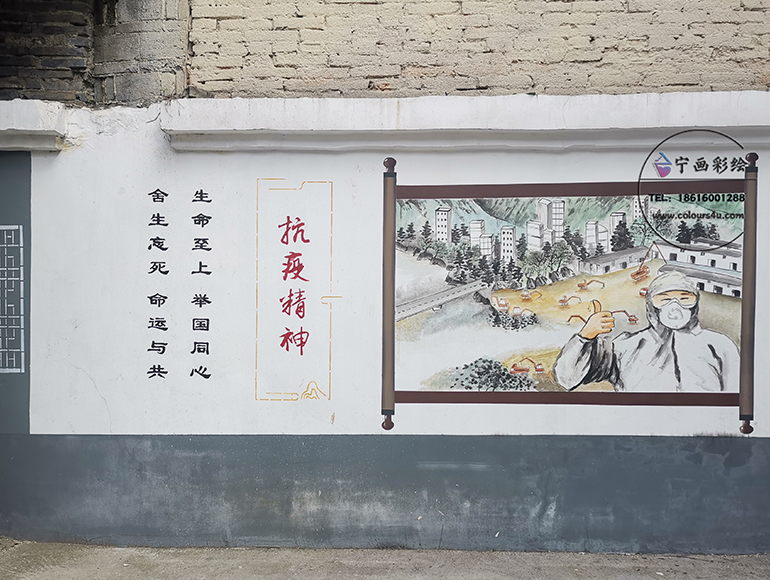 抗疫精神
生命至上 举国同心
舍生忘死 命运与共
宁画彩绘
TEL: 18616001288
www.colours4u.com